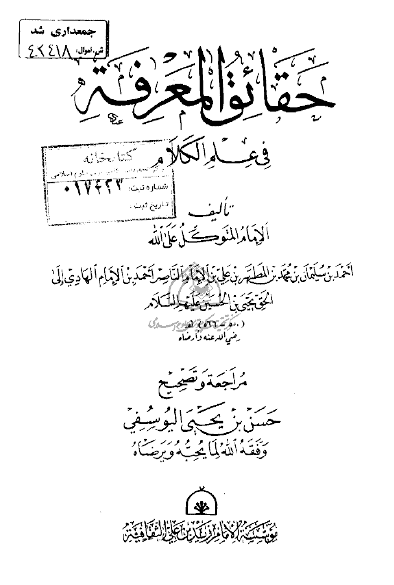 جمعداری شد
حَقَائِقُ المَعْرِفَةِ
فِي عِلْمِ الكَلَامِ
كتابخانه
شماره ثبت:
تاريخ ثبت:
تأليف
الإِمَامُ المُتَوَكِّلُ عَلَى اللَّه
أحمد بن سليمان بن محمد بن المطهر بن علي بن الإمام الناصر أحمد بن الإمام الهادي إلى
الحق يحيى بن الحسين عليهم السلام
رضي الله عنه وأرضاه
مُرَاجَعَة وَتَصْحِيح
حَسَن بْن يَحْيَى اليُوسُفِي
وَفَّقَهُ اللَّهُ لِمَا يُحِبُّهُ وَيَرْضَاهُ
مؤسسة الإمام زيد بن علي الثقافية